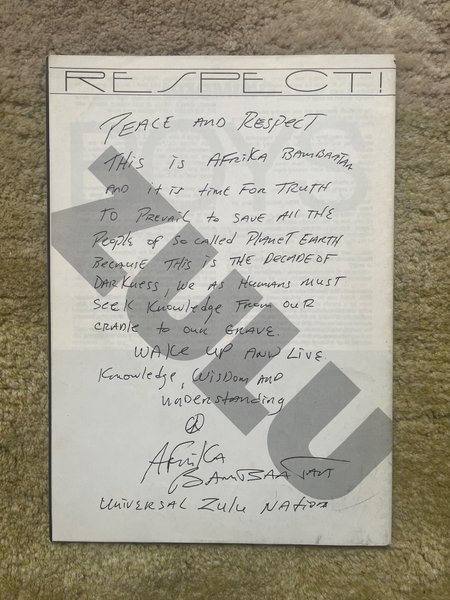 RESPECT!
PEACE AND RESPECT
THIS IS AFRIKA BAMBAATAA
AND it is time FOR TRUTH
TO PREVAIL to SAVE All THE
People of So called Planet EARTH
BECAUSE THIS IS THE DECADE OF
DARKNESS, WE AS HUMANS MUST
SEEK KNOWLEDGE FROM OUR
CRADLE to OUR GRAVE.
WAKE UP AND LIVE
Knowledge, WISDOM AND
UNDERSTANDING
AFRIKA
BAMBAATAA
UNIVERSAL ZULU NATION
ZULU